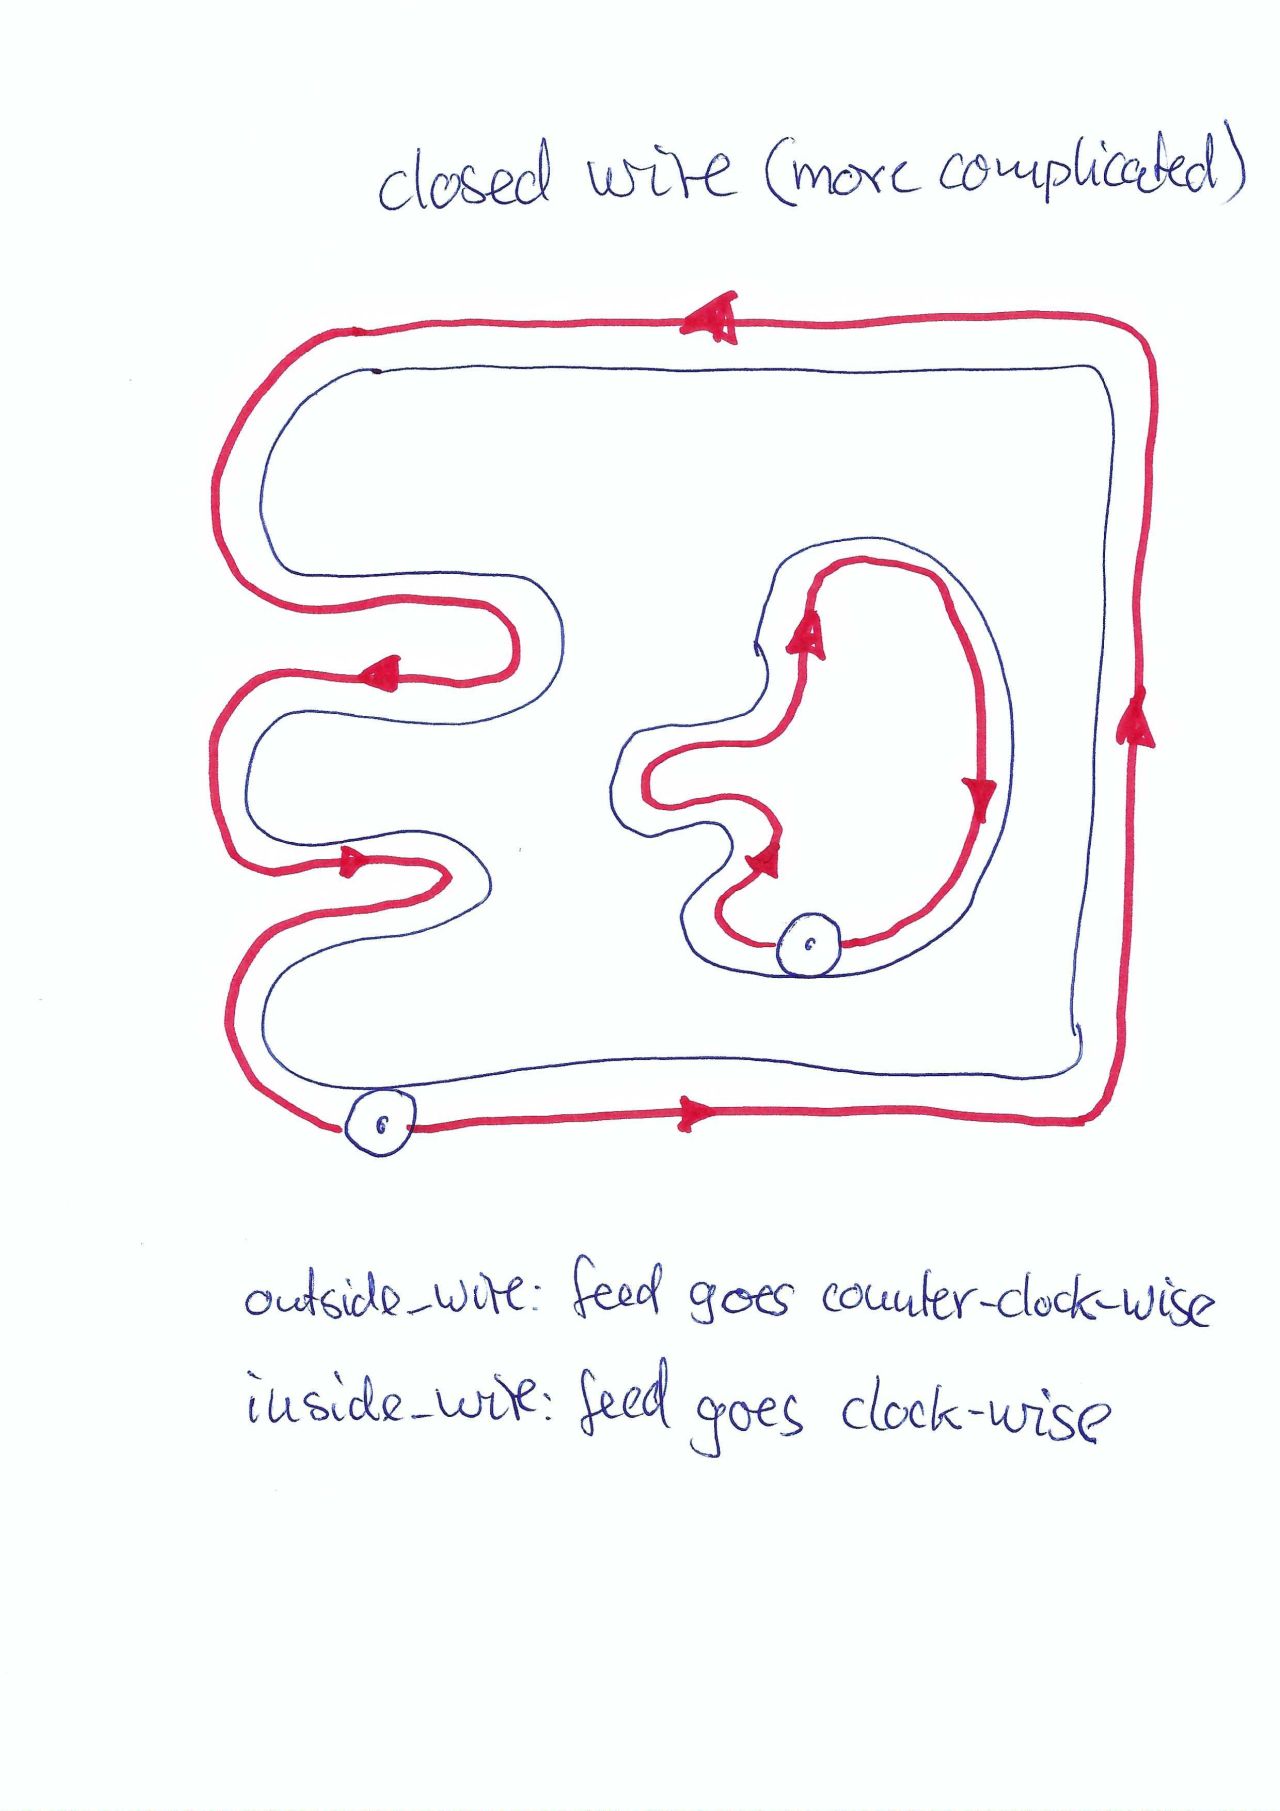 closed wire (more complicated)
outside_wire: feed goes counter-clock-wise
inside_wire: feed goes clock-wise